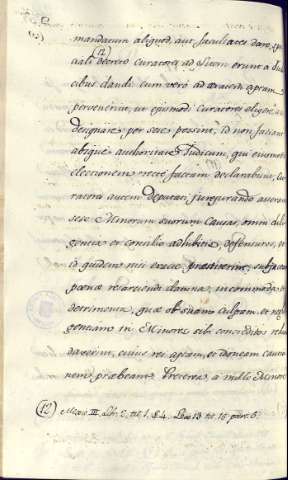 mandatum aliquod, aut facultates dare, sp
ciali decreto curatores ad litem erunt a Iud
(12)
cibus dandi cum verò ad
pervenerint, ut ejusmodi curatores eligere, et
designare per sese possint, id non faciant
absque authoritate Iudicum, qui ejusmodi
electionem recte factam declarabunt, Cu
ratores autem deputati, jurejurando
sese Minorum suorum causas, omni dili
gentia et consilio adhibitis, defensuros,
quidem nisi praestiterint, subjaceant
poenae resarciendi damna, incommoda et
detrimenta, quae ob suam culpam, et negli
gentiam in Minores sibi concreditos redun
daverint, cuius rei aptam, et idoneam cautio
nem praebeant Praeterea, a nullo Minore
(12) III. Lib. 2. tit. 1. § 4. 13 tit 16 par. 6